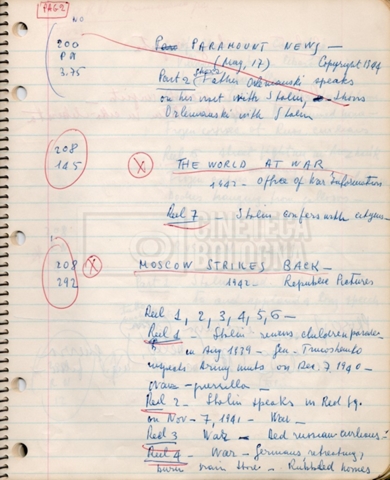 PAGE 2
NO
200
PA
3.75
PARAMOUNT NEWS —
(Aug, 17) Copyright 1944
Part 2 Father Orlemanski speaks
on his visit with Stalin, — Shows
Orlemanski with Stalin
208
145
THE WORLD AT WAR
1942 - Office of War Information
Reel 7 - Stalin confers with
CINETECA
BOLOGNA
208
292
MOSCOW STRIKES BACK —
1942 - Republic Pictures
Reel 1, 2, 3, 4, 5, 6 —
Reel 1 - Stalin reviews children parade
in Aug 1939 - Gen. Timoshenko
army units on Nov. 7, 1940 -
guerrilla —
Reel 2 - Stalin speaks in Red Sq.
on Nov - 7, 1941 - War —
Reel 3 War - Red russian
Reel 4 - War - Germans retreating,
burn - Rubbled homes